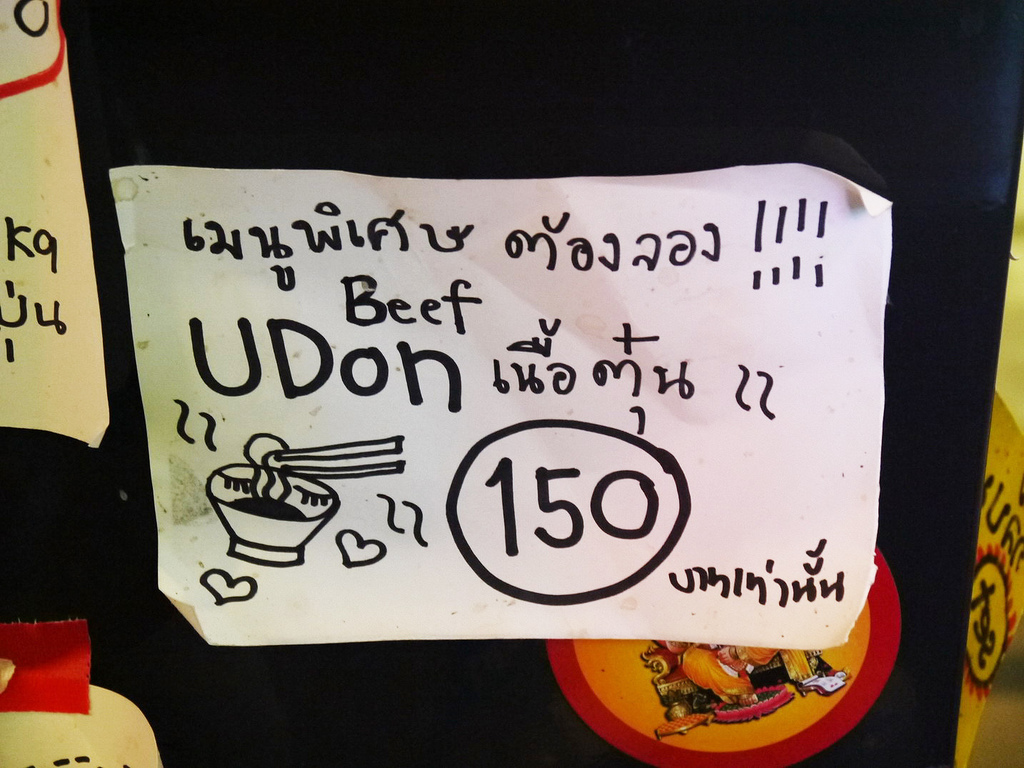 เมนูพิเศษ ต้องลอง !!!!
Beef
UDon เนื้อตุ๋น
150
บาทเท่านั้น
kg